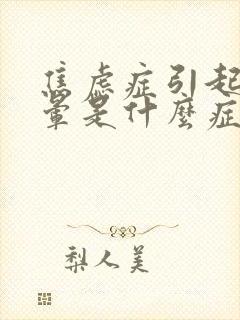 焦虑症引起
晕是什麼症
梨人美